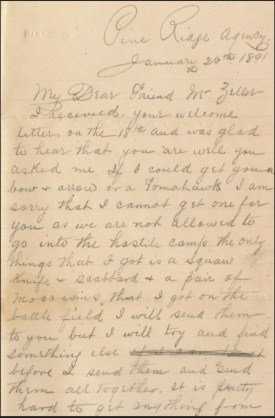 Pine Ridge Agency.
January 26th 1891
My Dear Friend Mr Zeller
I received your welcome
letter on the 18th and was glad
to hear that you are well you
asked me If I could get you a
bow & arrow or a Tomahawk I am
sorry that I cannot get one for
you as we are not allowed to
go into the hostile camp the only
things that I got is a Squaw
Knife & Scabbard & a pair of
Moccasins, that I got on the
battle field I will send them
to you but I will try and find
something else
before I send them and send
them all together, it is pretty
hard to get anything from